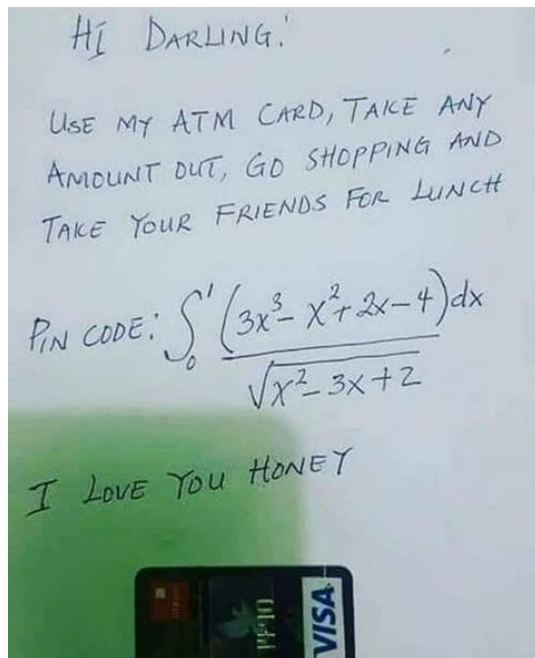 HI DARLING!
USE MY ATM CARD, TAKE ANY
AMOUNT OUT, GO SHOPPING AND
TAKE YOUR FRIENDS FOR LUNCH
PIN CODE: ∫₀¹ (3x³ – x² + 2x – 4)dx / √(x² – 3x + 2)
I LOVE YOU HONEY
VISA